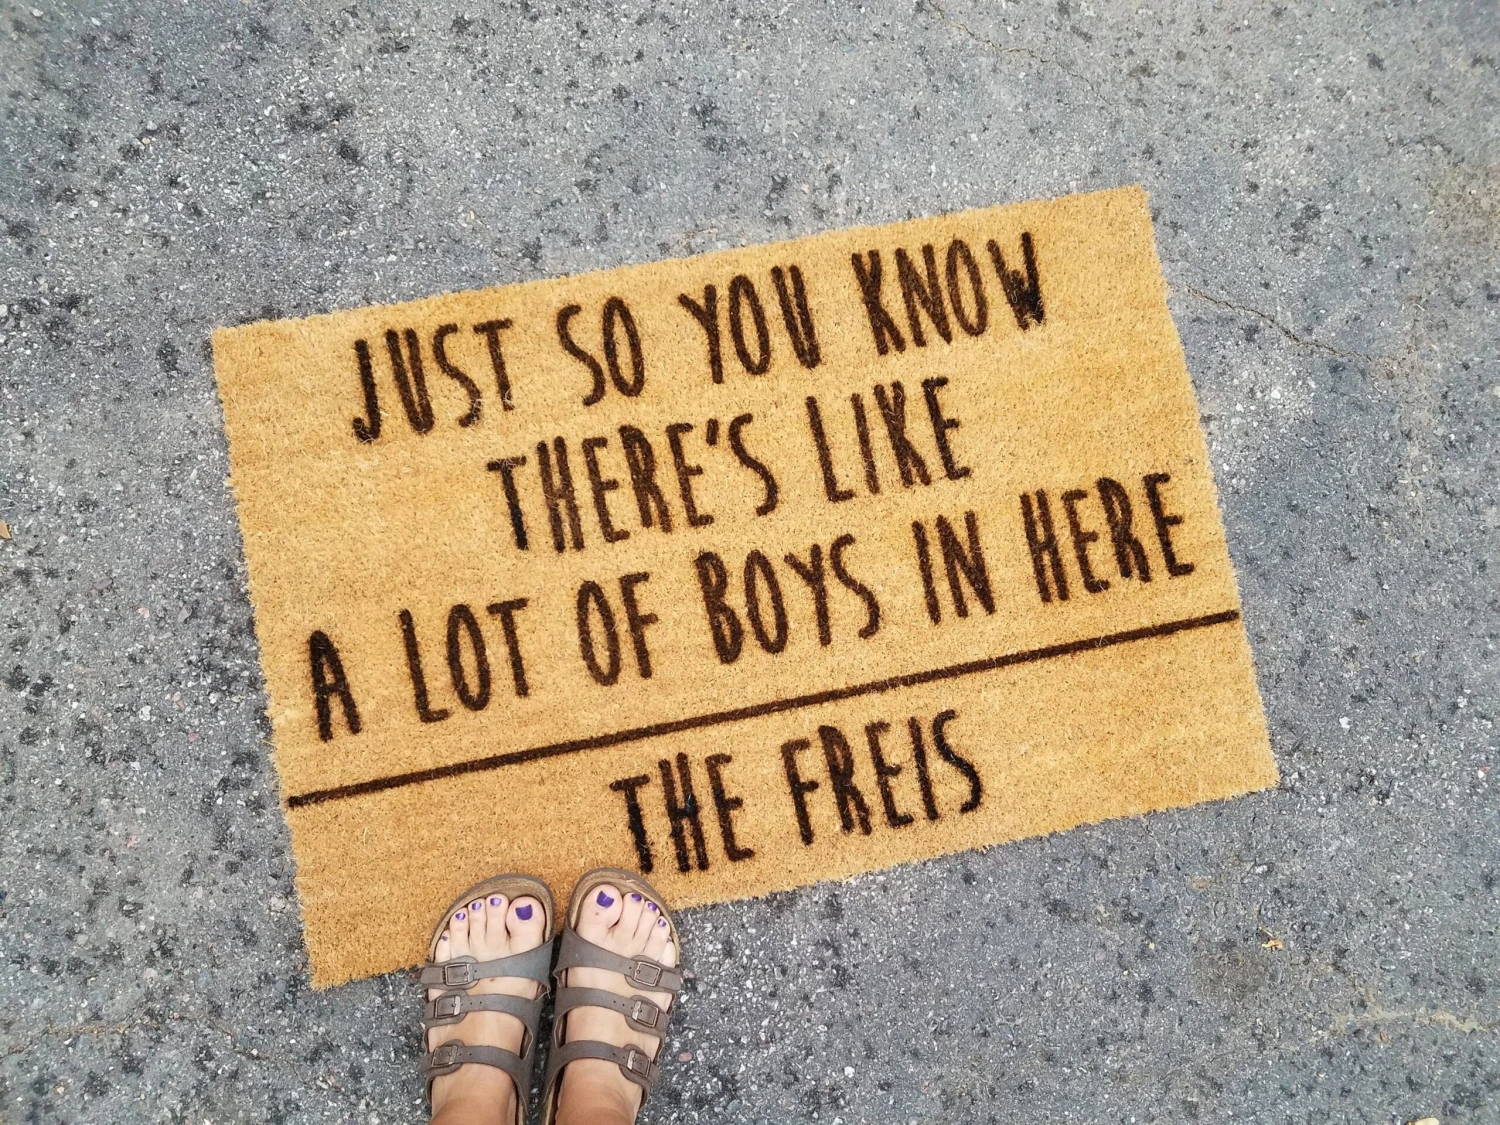 JUST SO YOU KNOW
THERE'S LIKE
A LOT OF BOYS IN HERE
THE FREIS